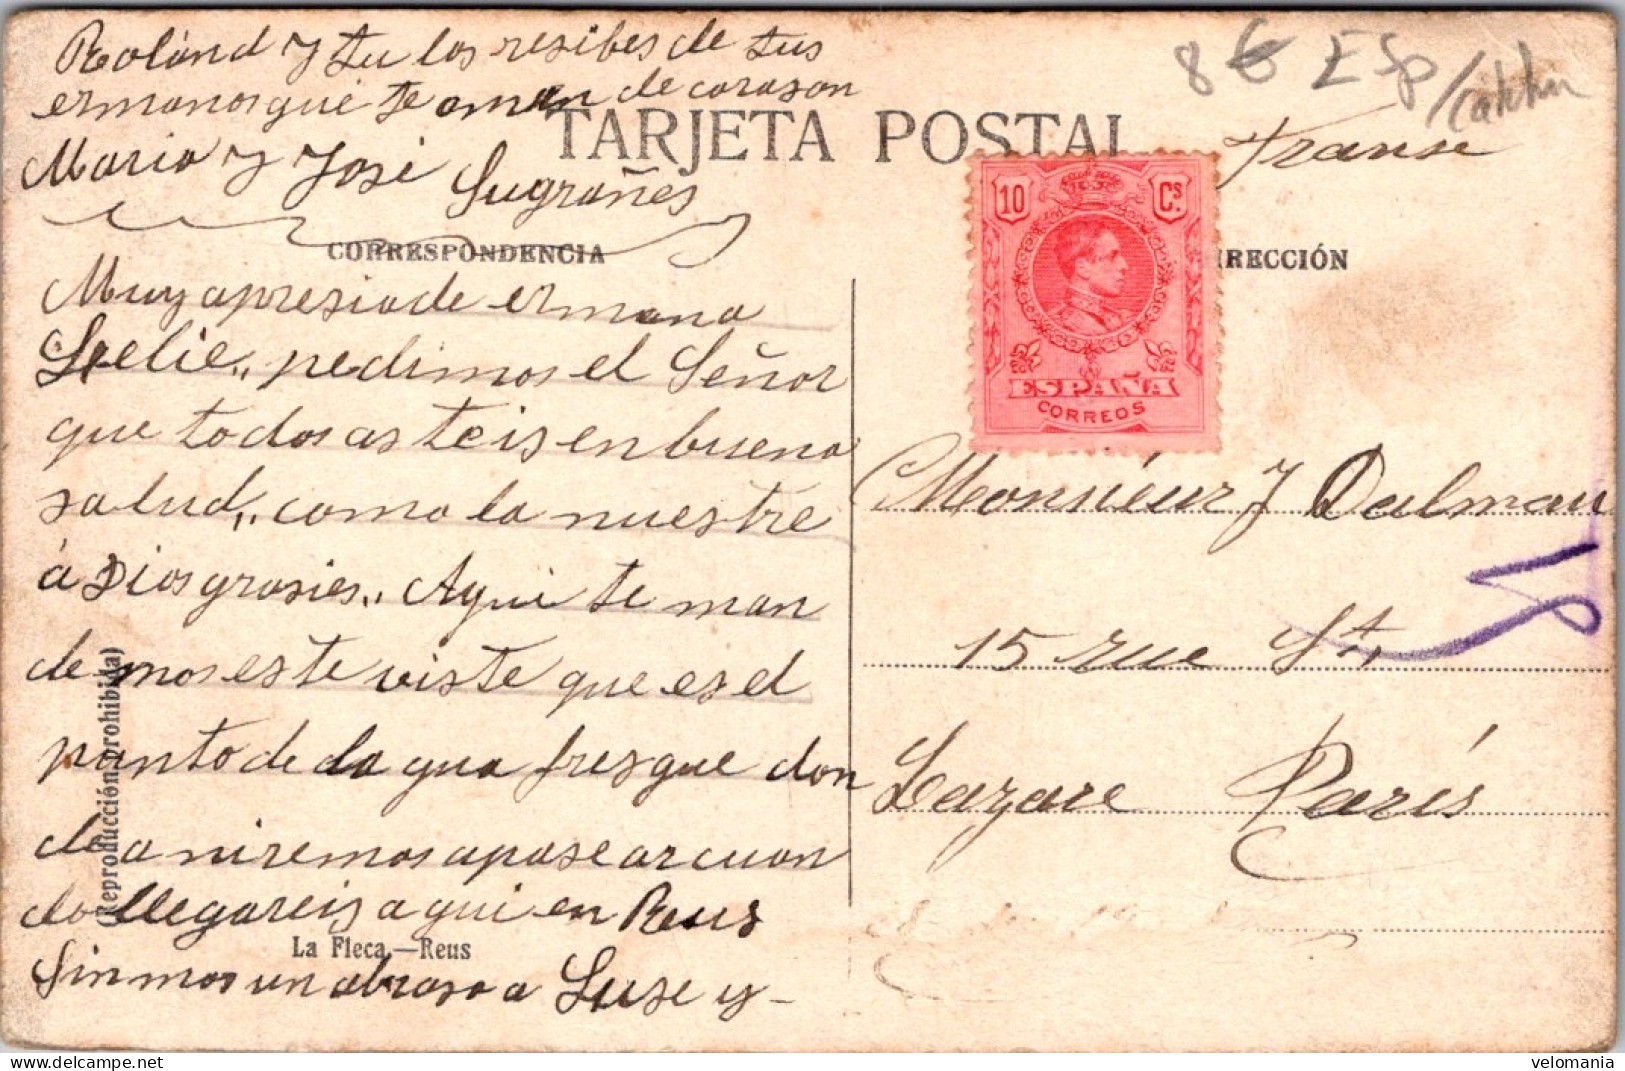 Roland y tu los resibes de tus
ermanos que te aman de corason
Maria y José Sugrañes
8 € ESp/
TARJETA POSTAL
Franse
10 Cs.
ESPAÑA
CORREOS
CORRESPONDENCIA
IRECCIÓN
Muy apresiade ermana
Lelie,, pedimos el Señor
que todos as teis en buena
salud,, como la nuestre
á Dios grasies,, Aqui te man
de mos este viste que es el
punto de la gua fresque don
de a niremos apasear cuan
do llegareis a qui en Reus
Sin mas un abraso a Luse y -
Monsiéur J Dalmau
15 rue St,
Lazare París
(Reproducción prohibida)
La Fleca.—Reus
velomania